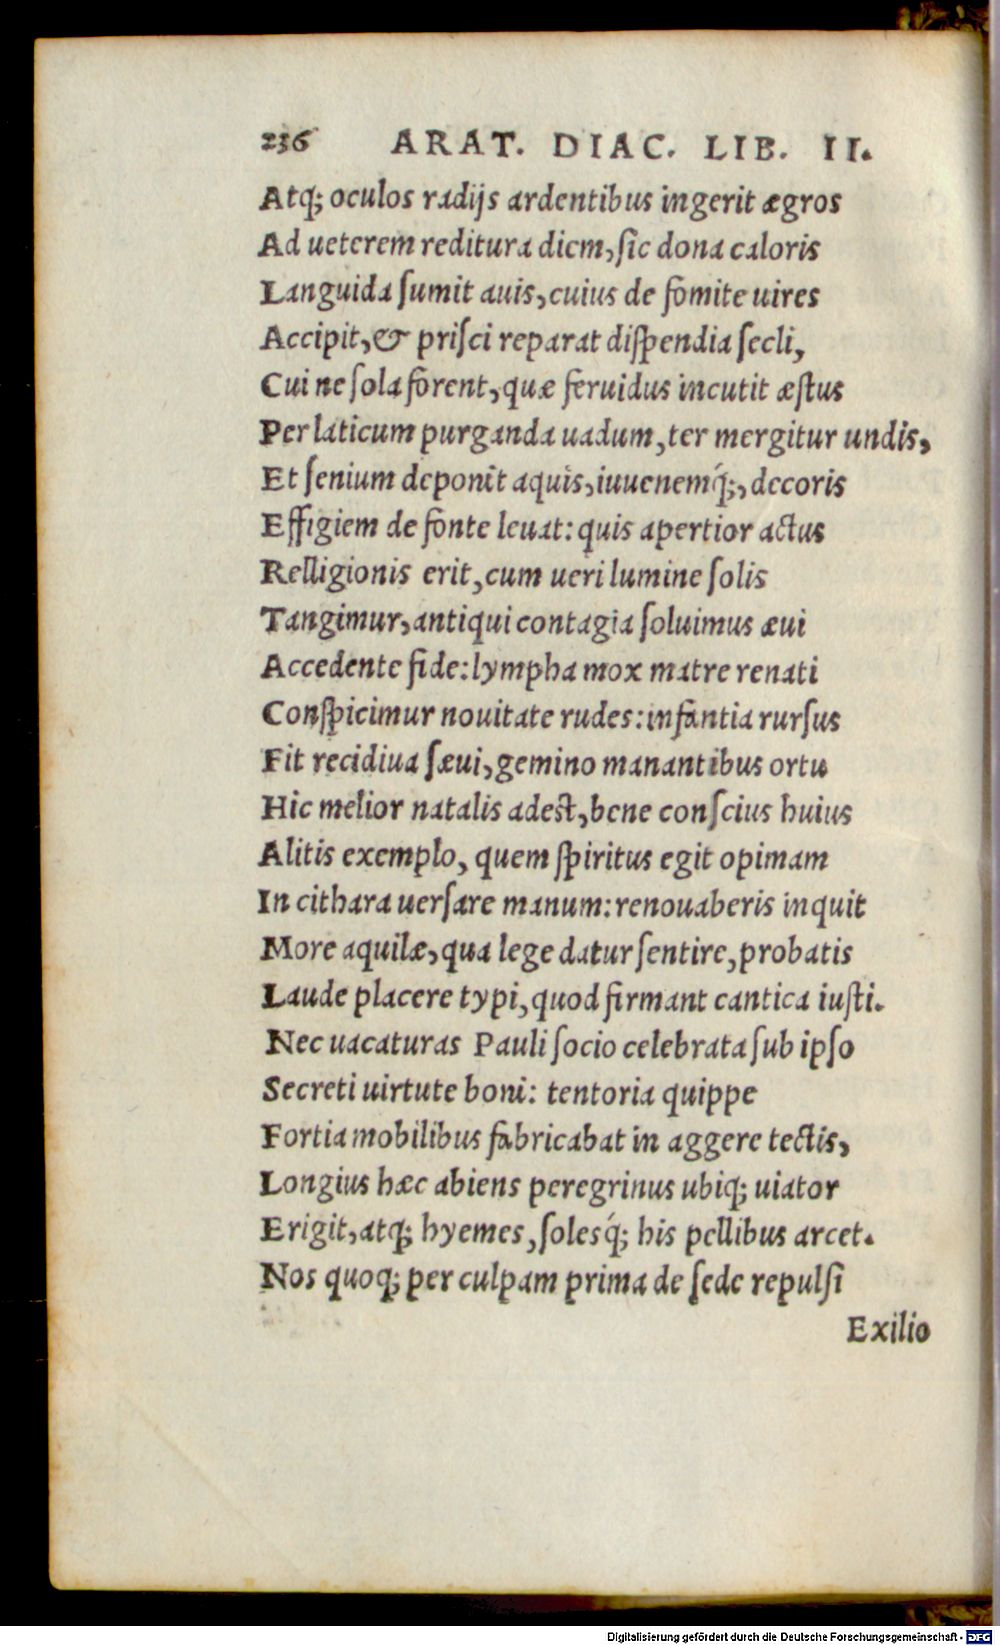 236 ARAT. DIAC. LIB. II.
Atq; oculos radijs ardentibus ingerit ægros
Ad ueterem reditura diem, ſic dona caloris
Languida ſumit auis, cuius de fomite uires
Accipit, & priſci reparat diſpendia ſecli,
Cui ne ſola forent, quæ feruidus incutit æſtus
Per laticum purganda uadum, ter mergitur undis,
Et ſenium deponit aquis, iuuenemq́;, decoris
Effigiem de fonte leuat: quis apertior actus
Relligionis erit, cum ueri lumine ſolis
Tangimur, antiqui contagia ſoluimus æui
Accedente fide: lympha mox matre renati
Conſpicimur nouitate rudes: infantia rurſus
Fit recidiua ſæui, gemino manantibus ortu
Hic melior natalis adeſt, bene conſcius huius
Alitis exemplo, quem ſpiritus egit opimam
In cithara uerſare manum: renouaberis inquit
More aquilæ, qua lege datur ſentire, probatis
Laude placere typi, quod firmant cantica iuſti.
Nec uacaturas Pauli ſocio celebrata ſub ipſo
Secreti uirtute boni: tentoria quippe
Fortia mobilibus fabricabat in aggere tectis,
Longius hæc abiens peregrinus ubiq; uiator
Erigit, atq; hyemes, ſolesq́; his pellibus arcet.
Nos quoq; per culpam prima de ſede repulſi
Exilio
Digitalisierung gefördert durch die Deutsche Forschungsgemeinschaft - DFG